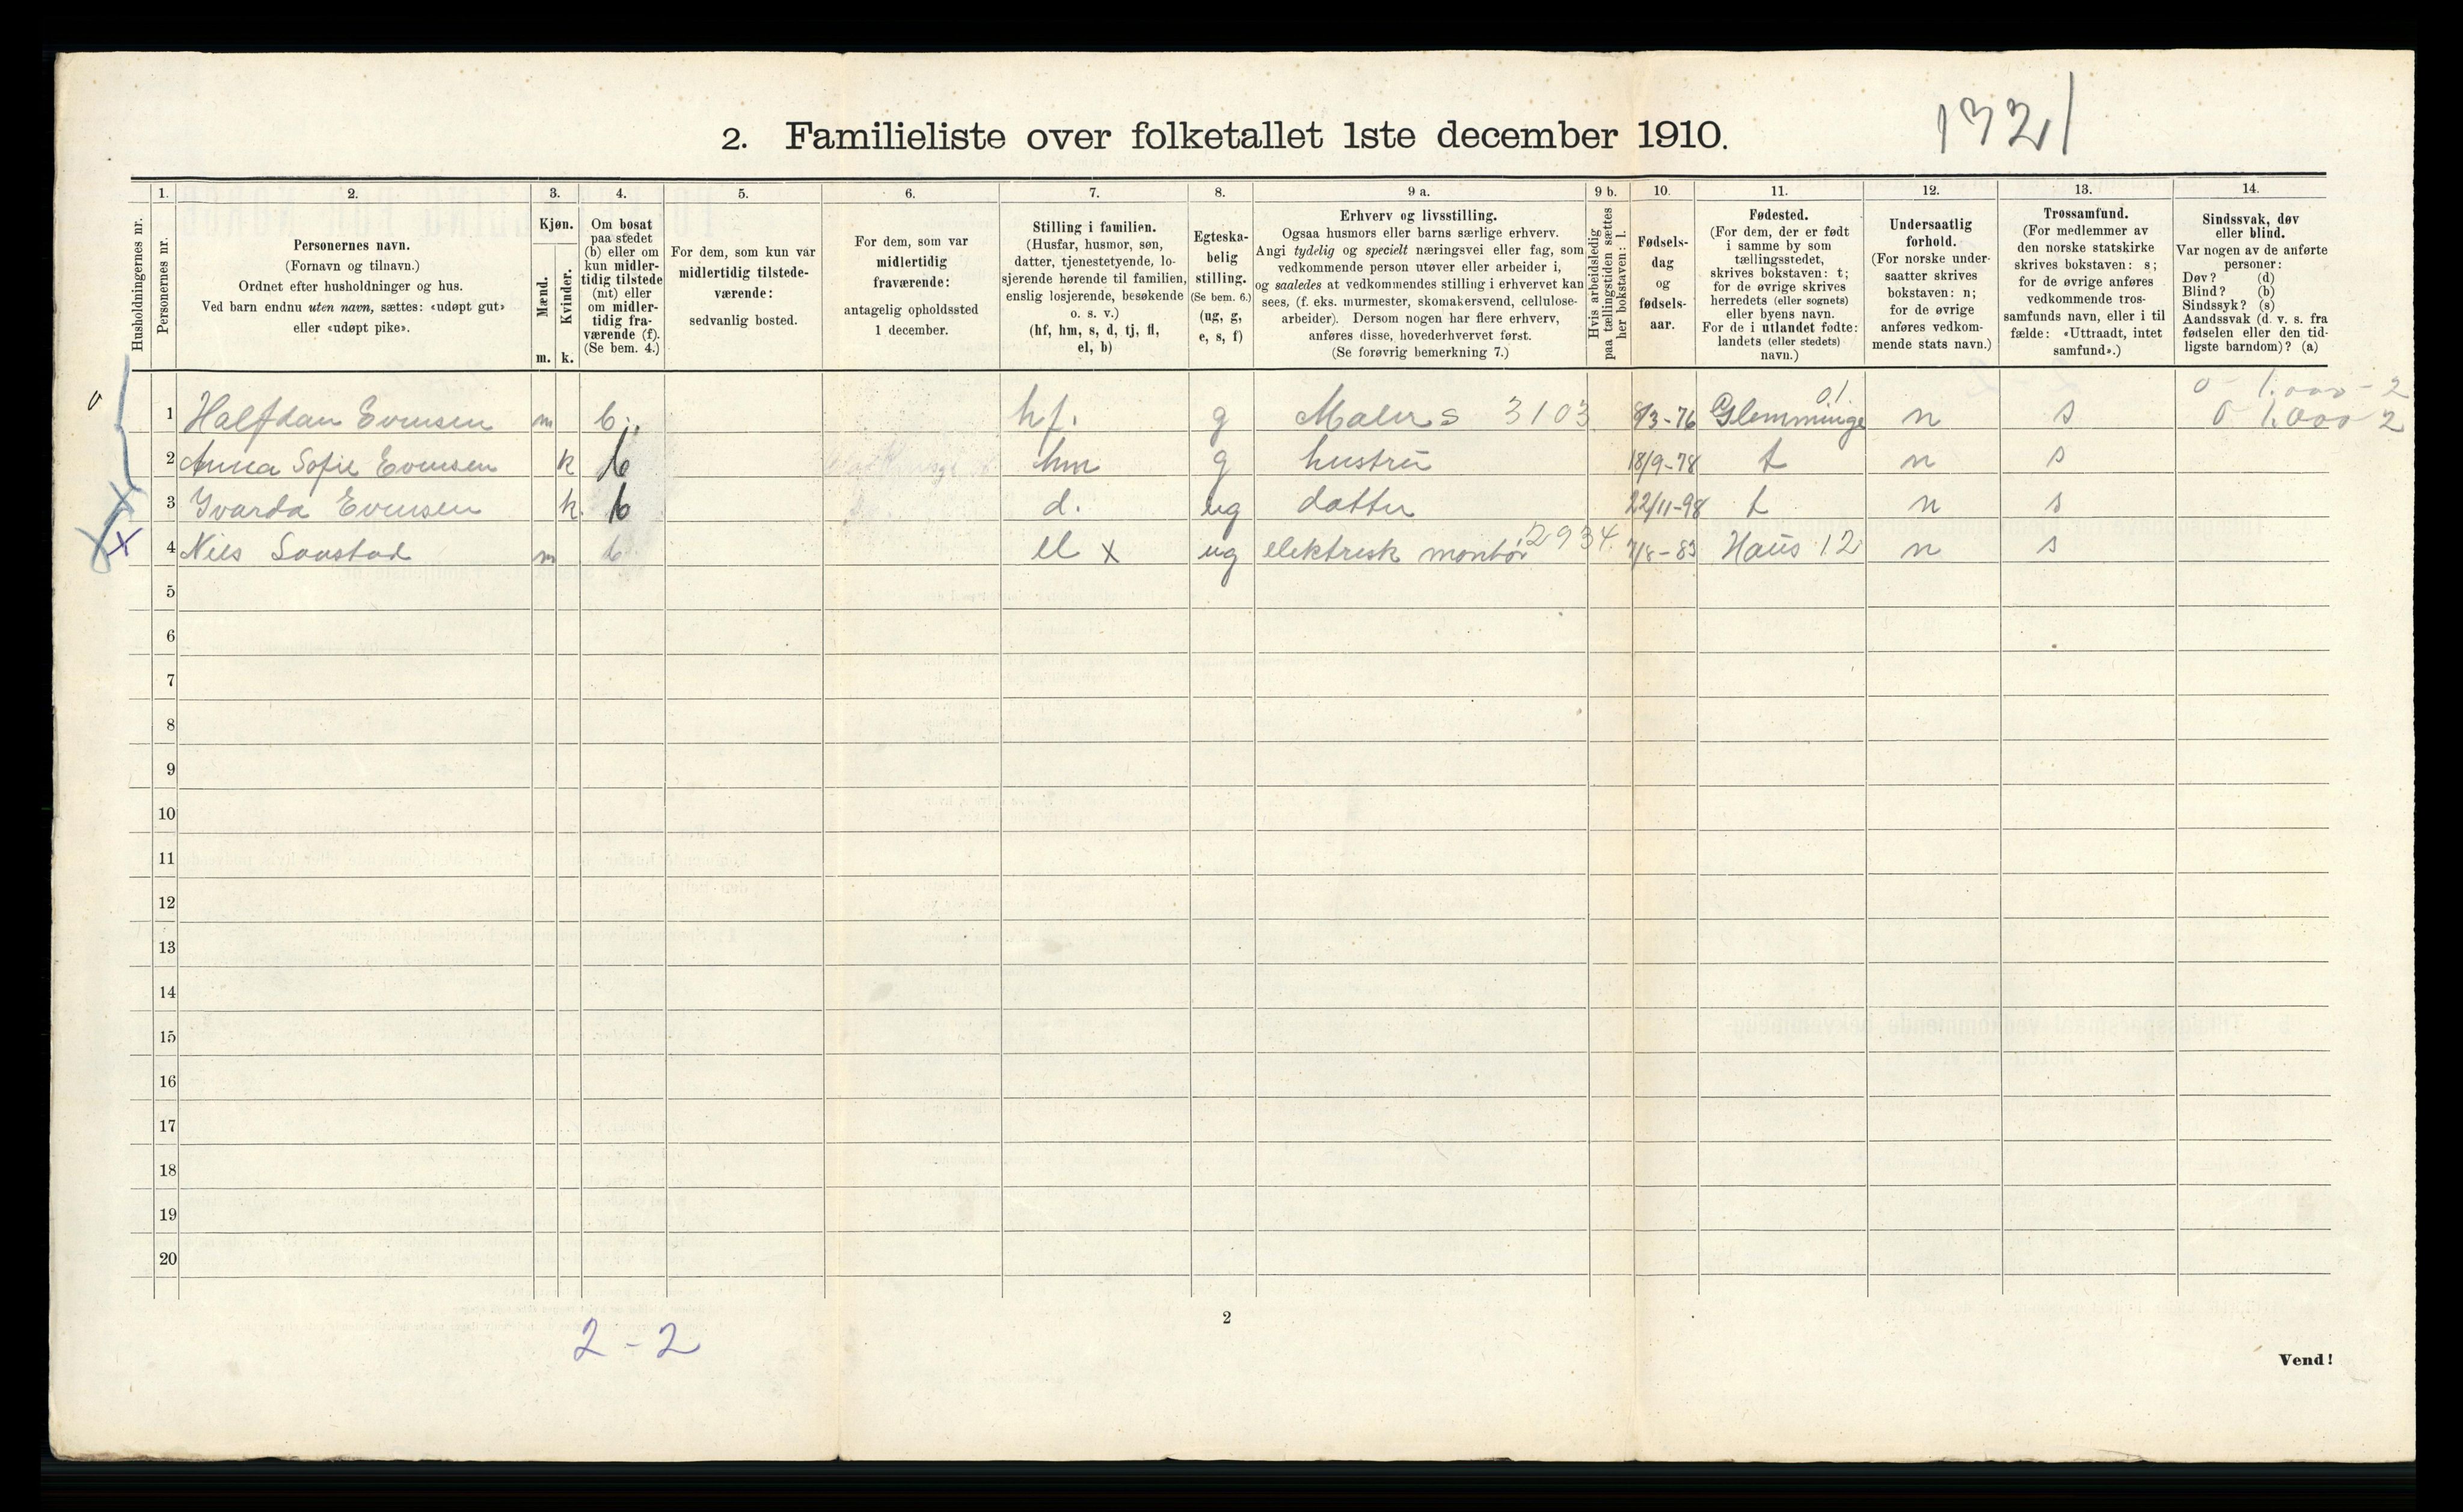 1321
2. Familieliste over folketallet 1ste december 1910.
Husholdningernes nr.
1. Personernes nr.
2. Personernes navn.
(Fornavn og tilnavn.)
Ordnet efter husholdninger og hus.
Ved barn endnu uten navn, sættes: «udøpt gut»
eller «udøpt pike».
3. Kjøn.
Mænd. Kvinder.
m. k.
4. Om bosat
paa stedet
(b) eller om
kun midler-
tidig tilstede
(mt) eller
om midler-
tidig fra-
værende (f).
(Se bem. 4.)
5. For dem, som kun var
midlertidig tilstede-
værende:
sedvanlig bosted.
6. For dem, som var
midlertidig
fraværende:
antagelig opholdssted
1 december.
7. Stilling i familien.
(Husfar, husmor, søn,
datter, tjenestetyende, lo-
sjerende hørende til familien,
enslig losjerende, besøkende
o. s. v.)
(hf, hm, s, d, tj, fl,
el, b)
8. Egteska-
belig
stilling.
(Se bem. 6.)
(ug, g,
e, s, f)
9 a. Erhverv og livsstilling.
Ogsaa husmors eller barns særlige erhverv.
Angi tydelig og specielt næringsvei eller fag, som
vedkommende person utøver eller arbeider i,
og saaledes at vedkommendes stilling i erhvervet kan
sees, (f. eks. murmester, skomakersvend, cellulose-
arbeider). Dersom nogen har flere erhverv,
anføres disse, hovederhvervet først.
(Se forøvrig bemerkning 7.)
9 b. Hvis arbeidsledig
paa tællingstiden sættes
her bokstaven: l.
10. Fødsels-
dag
og
fødsels-
aar.
11. Fødested.
(For dem, der er født
i samme by som
tællingsstedet,
skrives bokstaven: t;
for de øvrige skrives
herredets (eller sognets)
eller byens navn.
For de i utlandet fødte:
landets (eller stedets)
navn.)
12. Undersaatlig
forhold.
(For norske under-
saatter skrives
bokstaven: n;
for de øvrige
anføres vedkom-
mende stats navn.)
13. Trossamfund.
(For medlemmer av
den norske statskirke
skrives bokstaven: s;
for de øvrige anføres
vedkommende tros-
samfunds navn, eller i til
fælde: «Uttraadt, intet
samfund».)
14. Sindssvak, døv
eller blind.
Var nogen av de anførte
personer:
Døv? (d)
Blind? (b)
Sindssyk? (s)
Aandssvak (d. v. s. fra
fødselen eller den tid-
ligste barndom)? (a)
0 1.000 - 2
1 Halfdan Evensen m b. hf. g Maler s 3103 8/3-76 Glemminge 01 n s 0 1.000 2
2 Anna Sofie Evensen k b hm g hustru 18/9-78 t n s
3 Ivarda Evensen k b d. ug datter 22/11-98 t n s
4 Nils m b el x ug elektrisk montør 2934 7/8-83 Haus 12 n s
5
6
7
8
9
10
11
12
13
14
15
16
17
18
19
20
2
2-2
Vend!